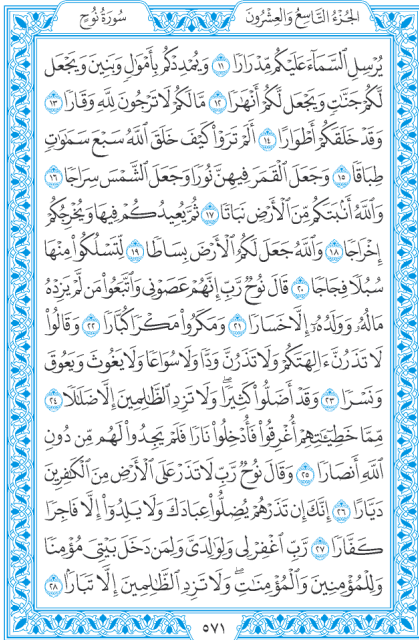 سُورَةُ نُوحٍ
الجُزْءُ التَّاسِعُ وَالعِشْرُونَ
يُرْسِلِ السَّمَاءَ عَلَيْكُم مِّدْرَارًا ١١ وَيُمْدِدْكُم بِأَمْوَالٍ وَبَنِينَ وَيَجْعَل
لَّكُمْ جَنَّاتٍ وَيَجْعَل لَّكُمْ أَنْهَارًا ١٢ مَّا لَكُمْ لَا تَرْجُونَ لِلَّهِ وَقَارًا ١٣
وَقَدْ خَلَقَكُمْ أَطْوَارًا ١٤ أَلَمْ تَرَوْا كَيْفَ خَلَقَ اللَّهُ سَبْعَ سَمَاوَاتٍ
طِبَاقًا ١٥ وَجَعَلَ الْقَمَرَ فِيهِنَّ نُورًا وَجَعَلَ الشَّمْسَ سِرَاجًا ١٦
وَاللَّهُ أَنبَتَكُم مِّنَ الْأَرْضِ نَبَاتًا ١٧ ثُمَّ يُعِيدُكُمْ فِيهَا وَيُخْرِجُكُمْ
إِخْرَاجًا ١٨ وَاللَّهُ جَعَلَ لَكُمُ الْأَرْضَ بِسَاطًا ١٩ لِّتَسْلُكُوا مِنْهَا
سُبُلًا فِجَاجًا ٢٠ قَالَ نُوحٌ رَّبِّ إِنَّهُمْ عَصَوْنِي وَاتَّبَعُوا مَن لَّمْ يَزِدْهُ
مَالُهُ وَوَلَدُهُ إِلَّا خَسَارًا ٢١ وَمَكَرُوا مَكْرًا كُبَّارًا ٢٢ وَقَالُوا
لَا تَذَرُنَّ آلِهَتَكُمْ وَلَا تَذَرُنَّ وَدًّا وَلَا سُوَاعًا وَلَا يَغُوثَ وَيَعُوقَ
وَنَسْرًا ٢٣ وَقَدْ أَضَلُّوا كَثِيرًا ۖ وَلَا تَزِدِ الظَّالِمِينَ إِلَّا ضَلَالًا ٢٤
مِّمَّا خَطِيئَاتِهِمْ أُغْرِقُوا فَأُدْخِلُوا نَارًا فَلَمْ يَجِدُوا لَهُم مِّن دُونِ
اللَّهِ أَنصَارًا ٢٥ وَقَالَ نُوحٌ رَّبِّ لَا تَذَرْ عَلَى الْأَرْضِ مِنَ الْكَافِرِينَ
دَيَّارًا ٢٦ إِنَّكَ إِن تَذَرْهُمْ يُضِلُّوا عِبَادَكَ وَلَا يَلِدُوا إِلَّا فَاجِرًا
كَفَّارًا ٢٧ رَّبِّ اغْفِرْ لِي وَلِوَالِدَيَّ وَلِمَن دَخَلَ بَيْتِيَ مُؤْمِنًا
وَلِلْمُؤْمِنِينَ وَالْمُؤْمِنَاتِ ۖ وَلَا تَزِدِ الظَّالِمِينَ إِلَّا تَبَارًا ٢٨
٥٧١